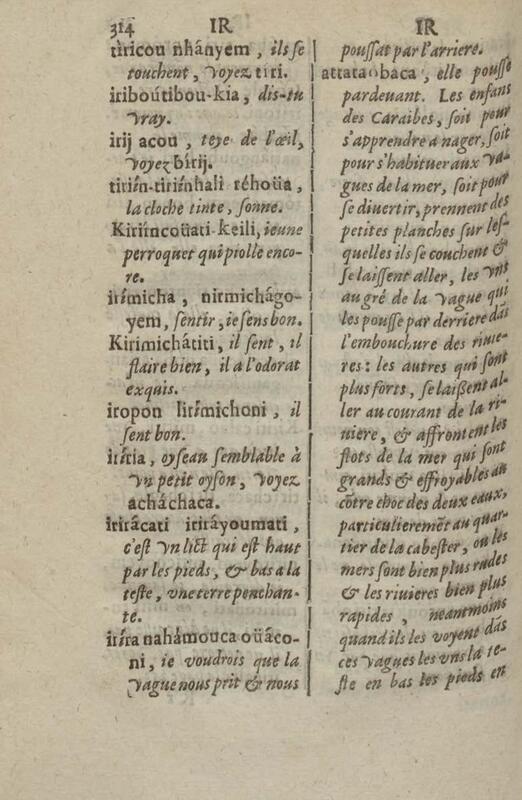 314 IR IR
tìricou nhányem, ils se
touchent, voyez tiri.
iriboútibou-kia, dis-tu
vray.
irij acou, teye de l'œil,
voyez bírij.
tiriín-tiriínhali réhoüa,
la cloche tinte, sonne.
Kiriíncoüati-keili, ieune
perroquet qui piolle enco-
re.
irímicha, nirmichágo-
yem, sentir, ie sens bon.
Kirimichátiti, il sent, il
flaire bien, il a l'odorat
exquis.
iropon lirímichoni, il
sent bon.
iríria, oyseau semblable à
vn petit oyson, voyez
acháchaca.
irirácati iriráyoumati,
c'est vn lict qui est haut
par les pieds, & bas a la
teste, vne terre penchan-
te.
iríra nahámouca oüáco-
ni, ie voudrois que la
vague nous prit & nous
poussat par l'arriere.
attataobaca, elle pousse
par deuant. Les enfans
des Caraibes, soit pour
s'apprendre a nager, soit
pour s'habituer aux va-
gues de la mer, soit pour
se diuertir, prennent des
petites planches sur les-
quelles ils se couchent &
se laissent aller, les vns
au gré de la vague qui
les pousse par derriere dãs
l'embouchure des riuie-
res: les autres qui sont
plus forts, se laißent al-
ler au courant de la ri-
uiere, & affrontent les
flots de la mer qui sont
grands & effroyables au
cõtre choc des deux eaux,
particulieremẽt au quar-
tier de la cabester, ou les
mers sont bien plus rudes
& les riuieres bien plus
rapides, neantmoins
quand ils les voyent dãs
ces vagues les vns la te-
ste en bas les pieds en